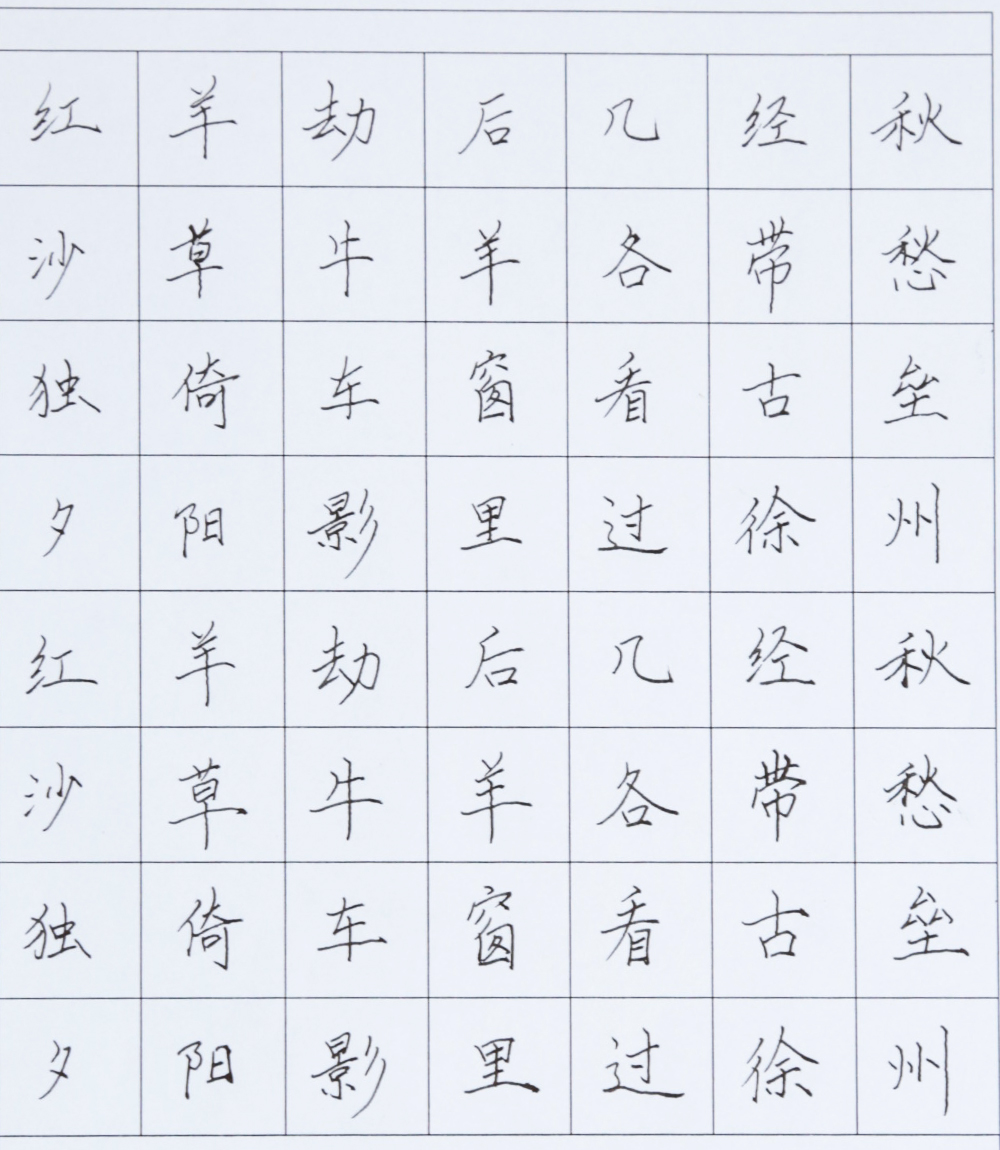 红羊劫后几经秋
沙草牛羊各带愁
独倚车窗看古垒
夕阳影里过徐州
红羊劫后几经秋
沙草牛羊各带愁
独倚车窗看古垒
夕阳影里过徐州